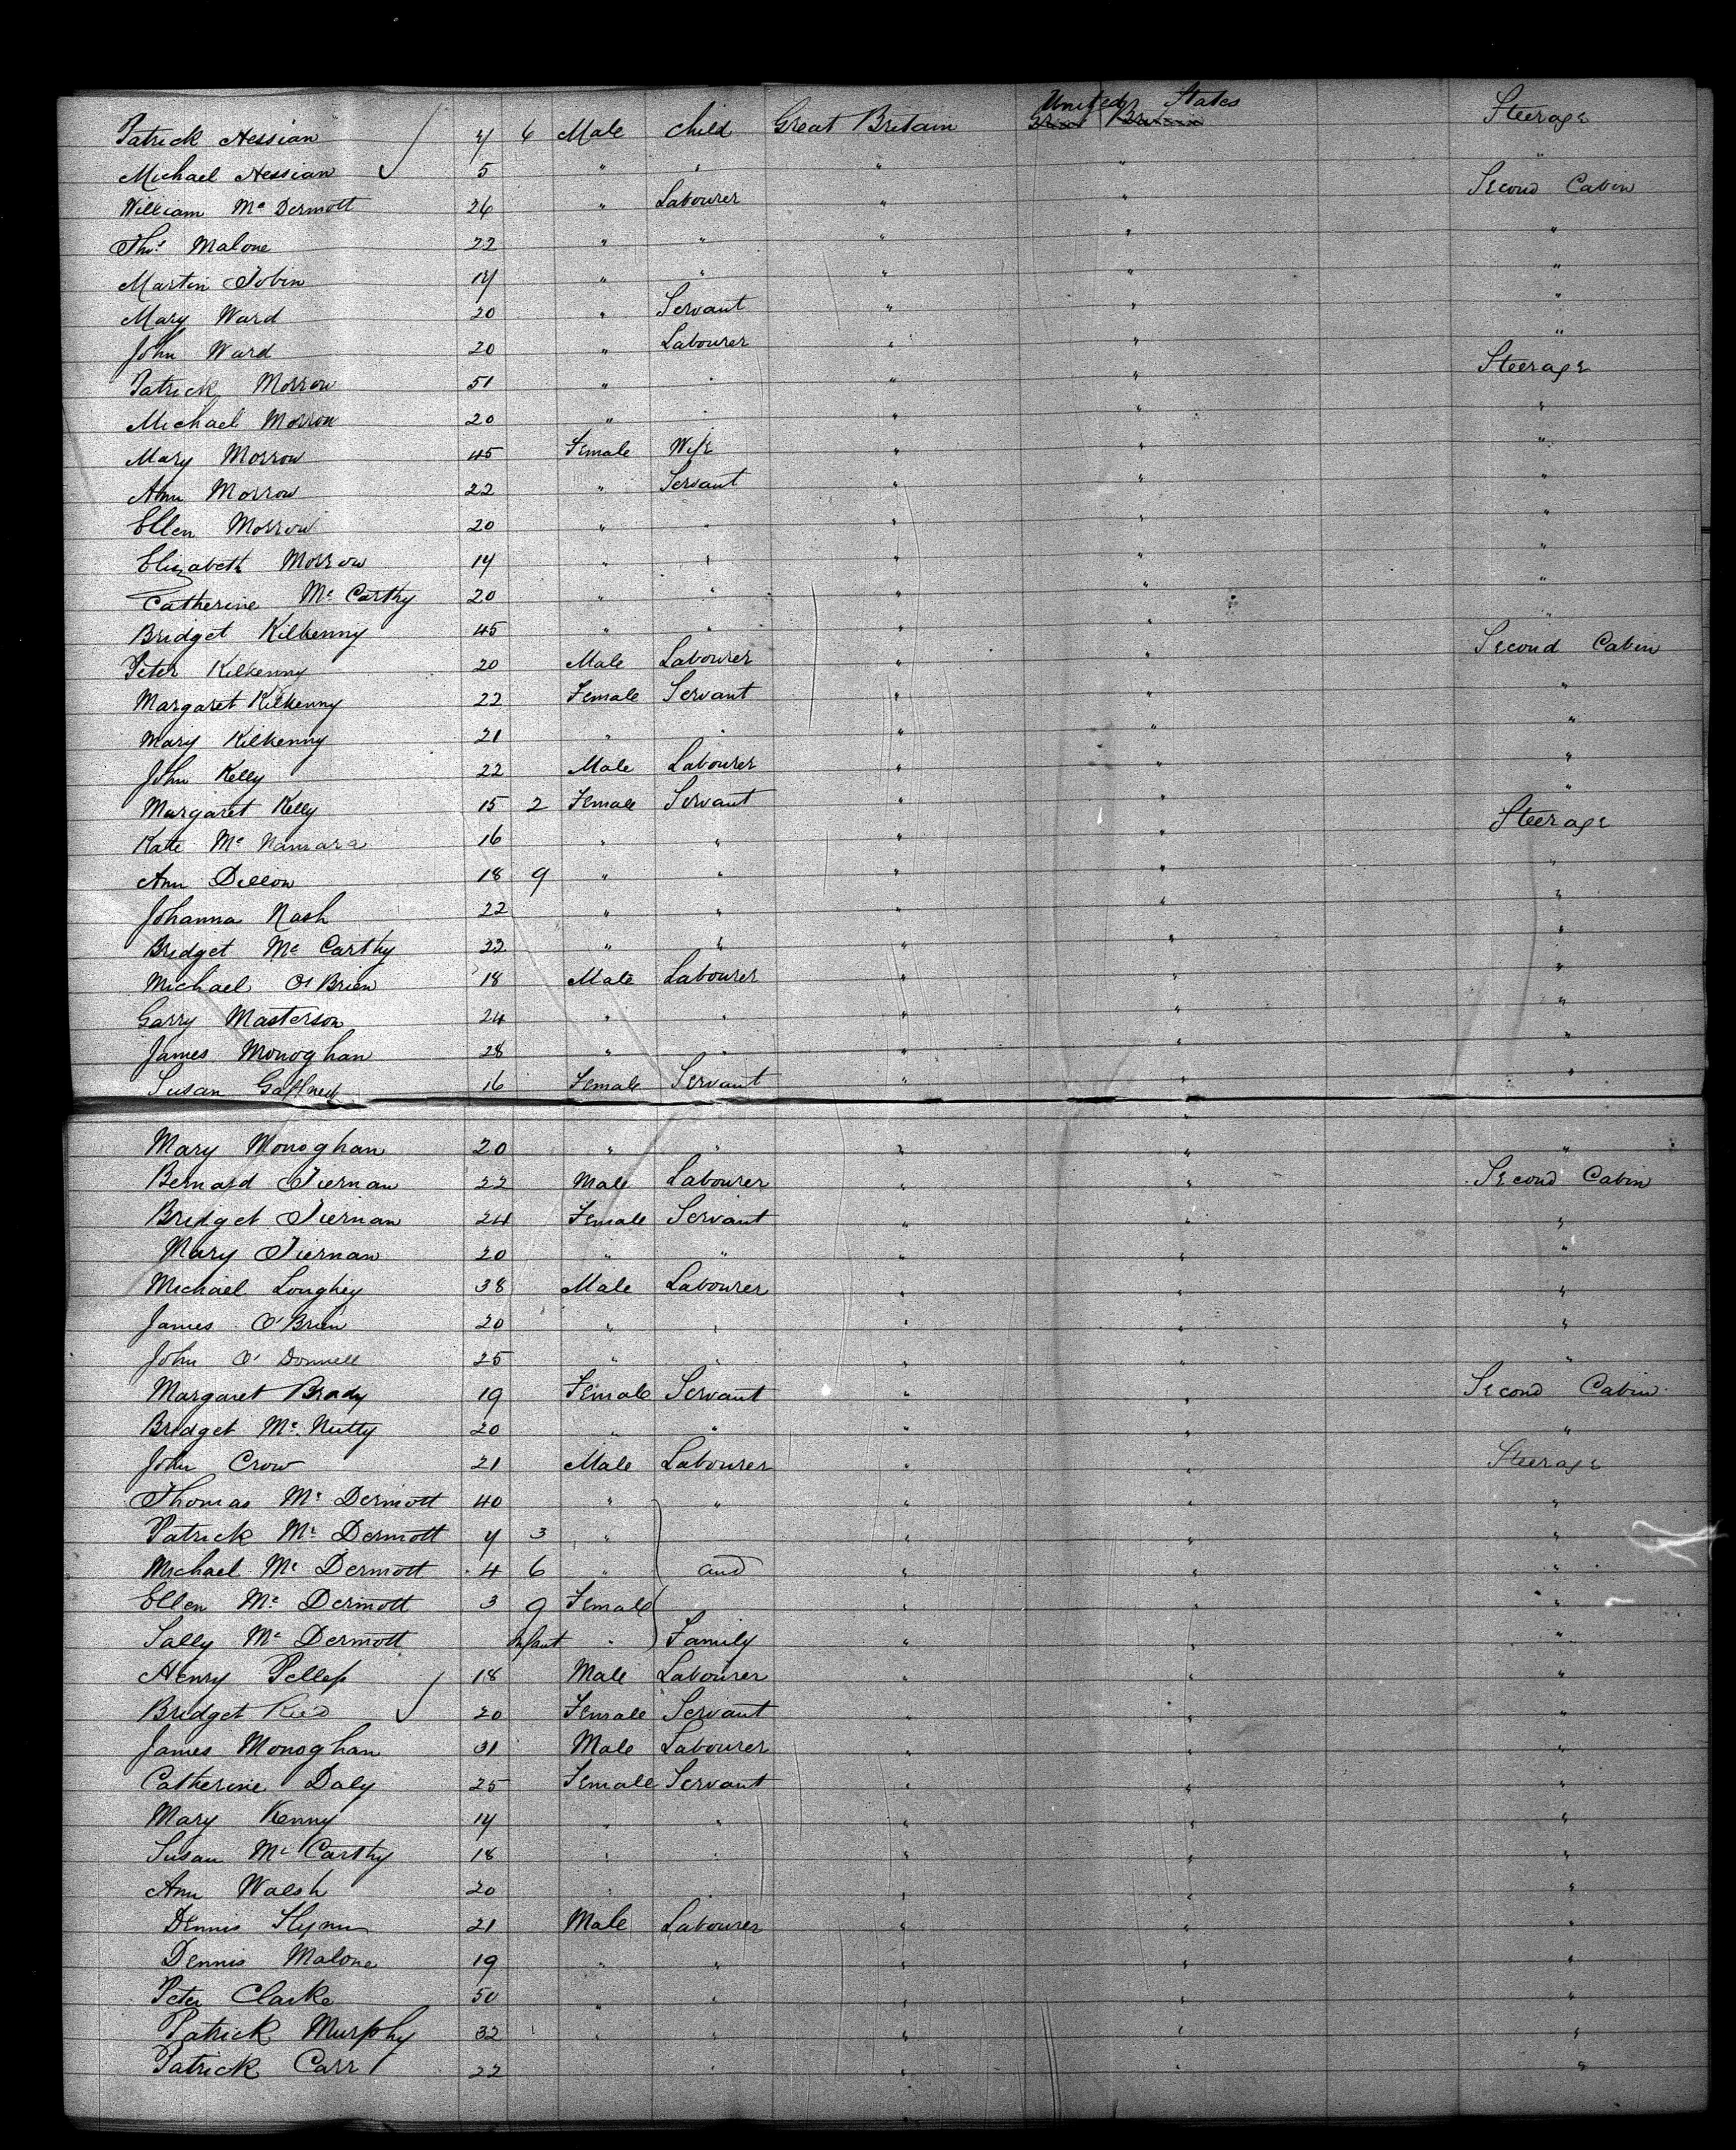 Patrick Hessian 7 6 Male Child Great Britain United States Great Britain Steerage
Michael Hessian 5 " " " " "
William Mc Dermott 26 " Labourer " " Second Cabin
Thos Malone 22 " " " " "
Martin Tobin 17 " " " " "
Mary Ward 20 " Servant " " "
John Ward 20 " Labourer " " "
Patrick Morrow 51 " " " " Steerage
Michael Morrow 20 " " " " "
Mary Morrow 45 Female Wife " " "
Ann Morrow 22 " Servant " " "
Ellen Morrow 20 " " " " "
Elizabeth Morrow 17 " " " " "
Catherine Mc Carthy 20 " " " " "
Bridget Kilkenny 45 " " " " "
Peter Kilkenny 20 Male Labourer " " Second Cabin
Margaret Kilkenny 22 Female Servant " " "
Mary Kilkenny 21 " " " " "
John Kelly 22 Male Labourer " " "
Margaret Kelly 15 2 Female Servant " " "
Kate Mc Namara 16 " " " " Steerage
Ann Dillon 18 9 " " " " "
Johanna Nash 22 " " " " "
Bridget Mc Carthy 22 " " " " "
Michael O'Brien 18 Male Labourer " " "
Garry Masterson 24 " " " " "
James Monoghan 28 " " " " "
Susan Gaffney 16 Female Servant " " "
Mary Monoghan 20 " " " " "
Bernard Tiernan 22 Male Labourer " " Second Cabin
Bridget Tiernan 24 Female Servant " " "
Mary Tiernan 20 " " " " "
Michael Loughey 38 Male Labourer " " "
James O'Brien 20 " " " " "
John O'Donnell 25 " " " " "
Margaret Brady 19 Female Servant " " Second Cabin
Bridget Mc Nutty 20 " " " " "
John Crow 21 Male Labourer " " Steerage
Thomas Mc Dermott 40 " " " " "
Patrick Mc Dermott 7 3 " " " "
Michael Mc Dermott 4 6 " and " " "
Ellen Mc Dermott 3 9 Female " " "
Sally Mc Dermott Infant " Family " " "
Henry 18 Male Labourer " " "
Bridget Reed 20 Female Servant " " "
James Monoghan 31 Male Labourer " " "
Catherine Daly 25 Female Servant " " "
Mary Kenny 17 " " " " "
Susan Mc Carthy 18 " " " " "
Ann Walsh 20 " " " " "
Dennis Flynn 21 Male Labourer " " "
Dennis Malone 19 " " " " "
Peter Clarke 50 " " " " "
Patrick Murphy 32 " " " " "
Patrick Carr 22 " " " "